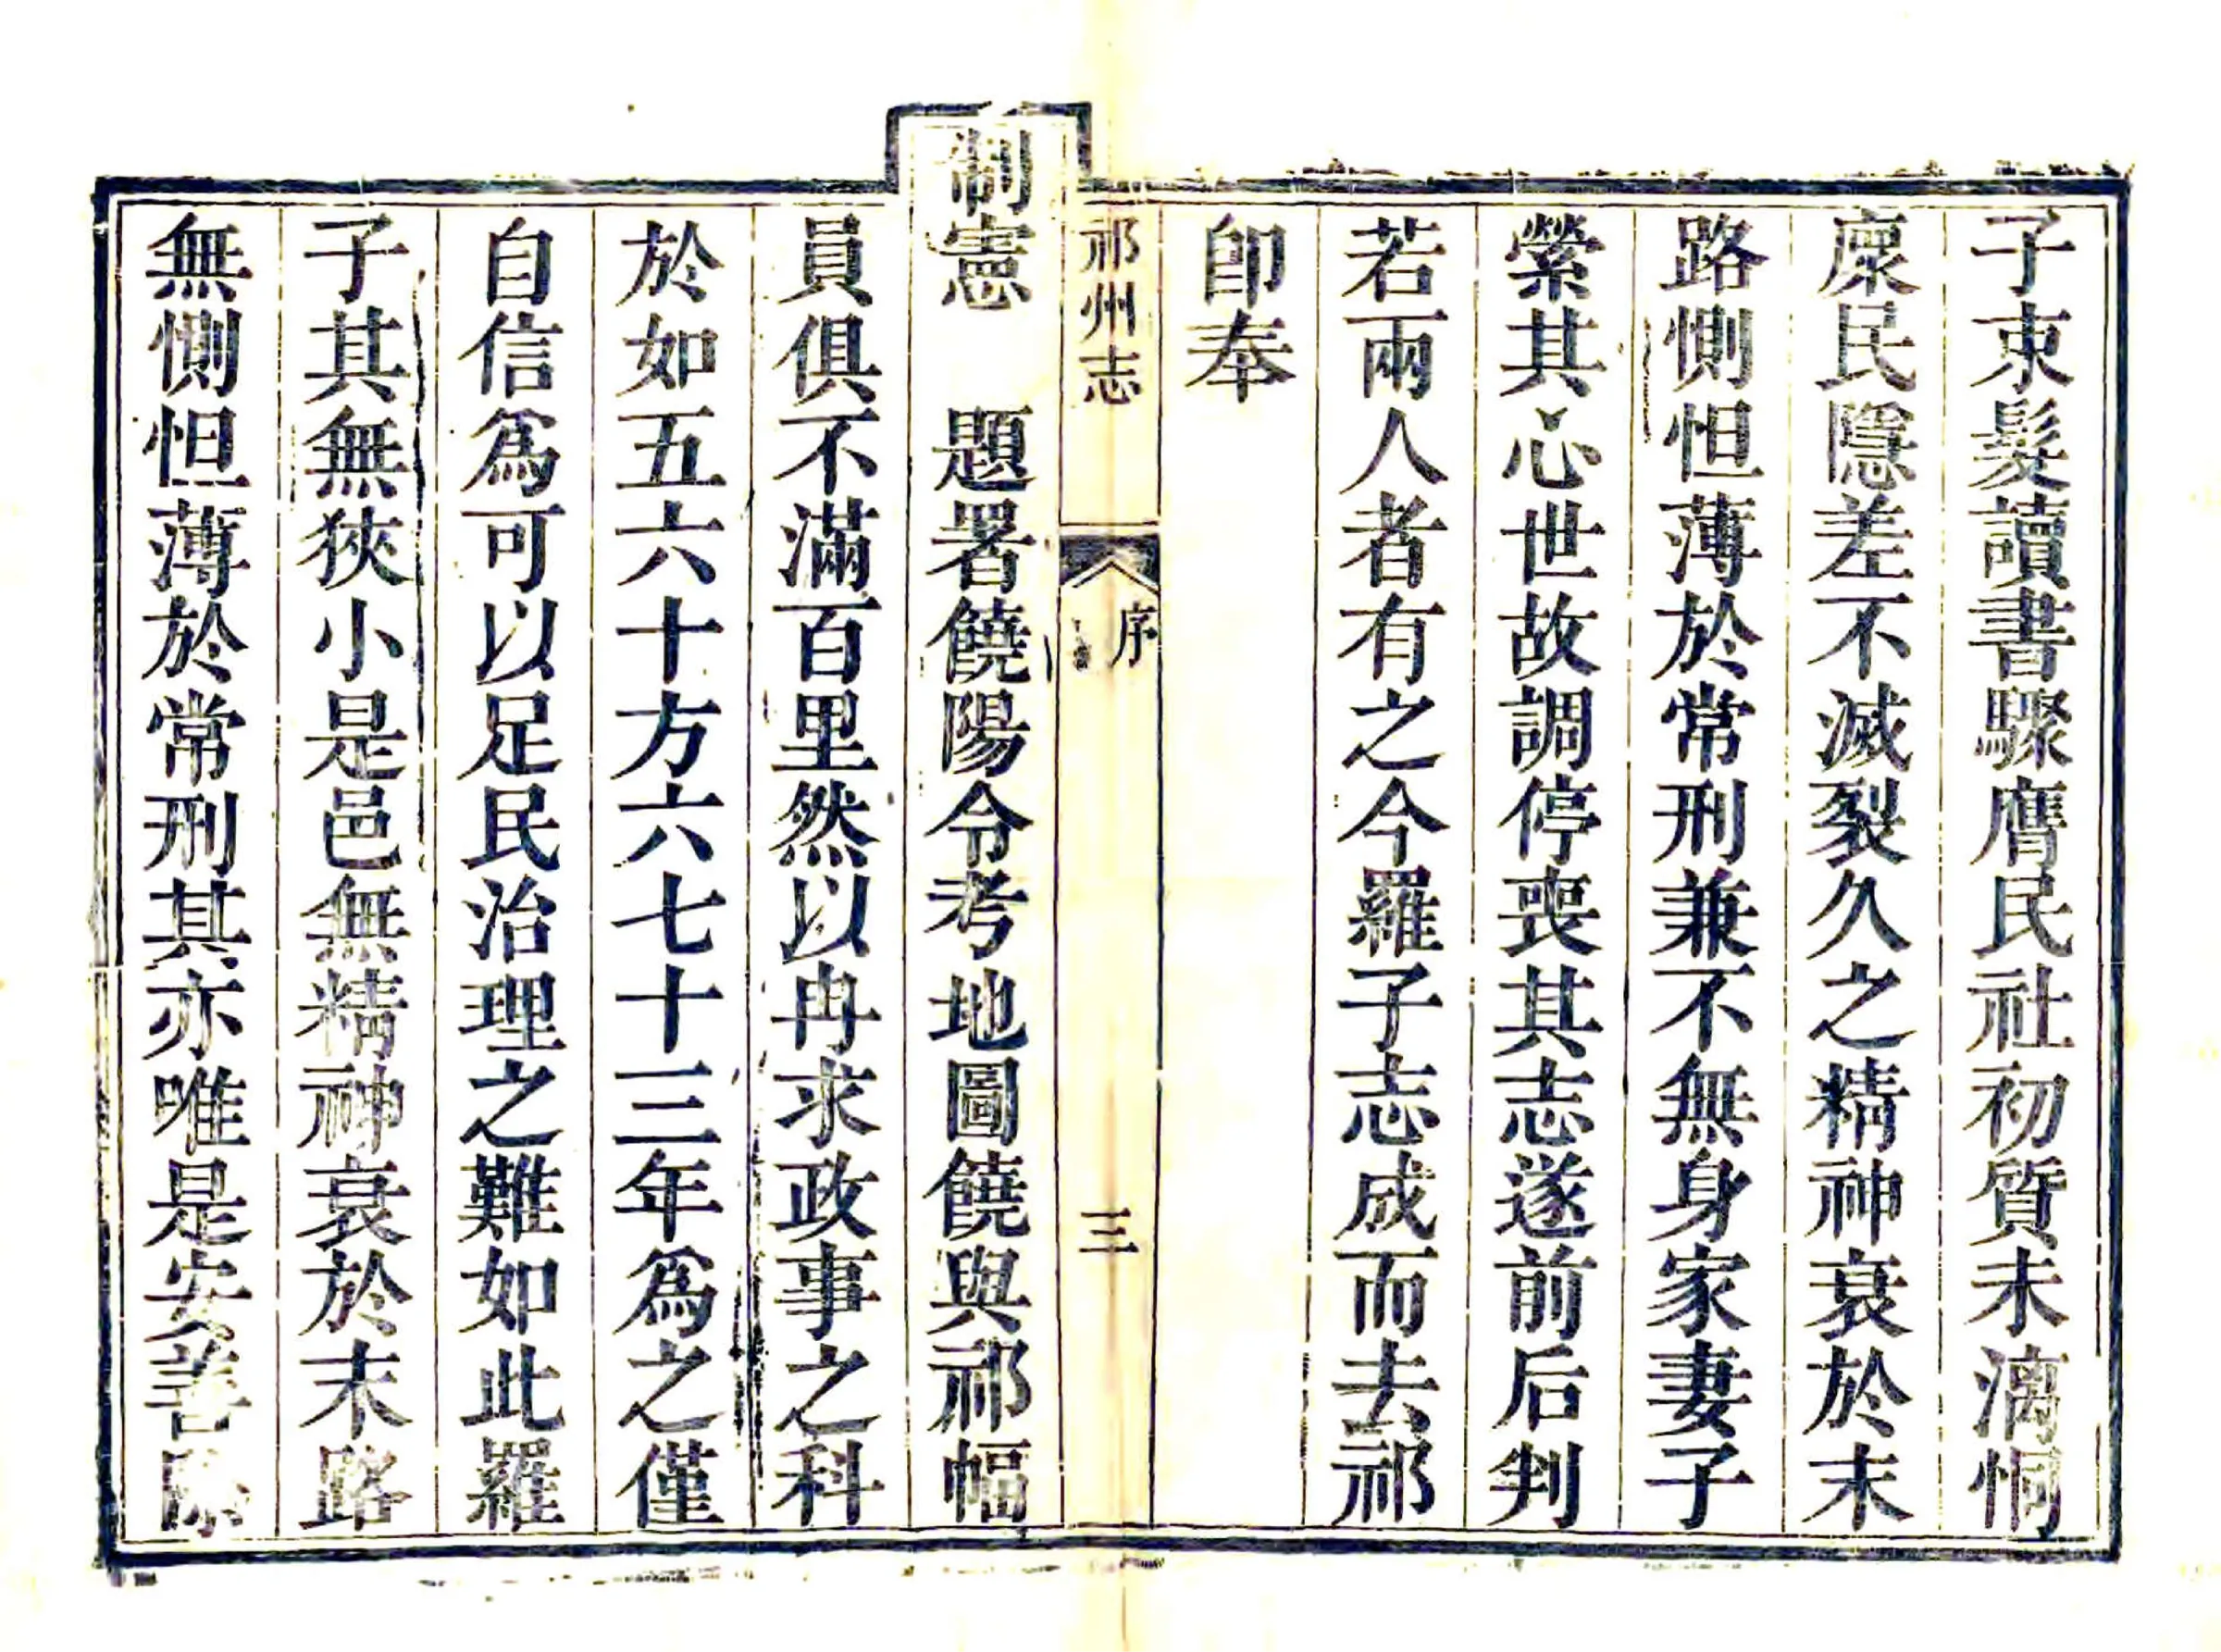 子束髮讀書驟膺民社初質未漓恫
瘝民隱差不滅裂久之精神衰於末
路惻怛薄於常刑兼不無身家妻子
縈其心世故調停喪其志遂前后判
若兩人者有之今羅子志成而去祁
卽奉
祁州志
序
三
制憲　題署饒陽令考地圖饒與祁幅
員俱不滿百里然以冉求政事之科
於如五六十方六七十三年爲之僅
自信爲可以足民治理之難如此羅
子其無狹小是邑無精神衰於末路
無惻怛薄於常刑其亦唯是安善